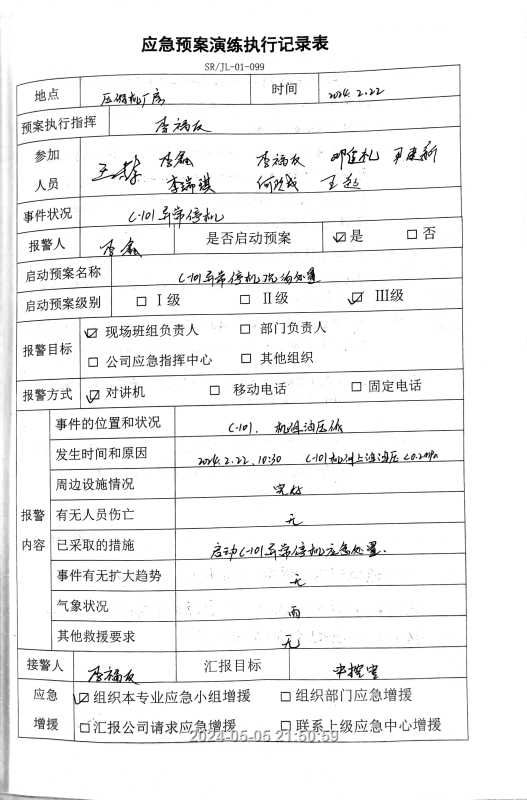 应急预案演练执行记录表
SR/JL-01-099
地点 压缩机厂房 时间 2024.2.22
预案执行指挥 李福友
参加
人员
李福友
李瑞琪
事件状况 C-101异常停机
报警人 李磊 是否启动预案 ☑是 □否
启动预案名称 C-101异常停机现场处置
启动预案级别 □Ⅰ级 □Ⅱ级 ☑Ⅲ级
报警目标 ☑现场班组负责人 □部门负责人
□公司应急指挥中心 □其他组织
报警方式 ☑对讲机 □移动电话 □固定电话
报警
内容
事件的位置和状况 C-101. 机体油压低
发生时间和原因 2024.2.22, 10:30 C-101机油压<0.2MPa
周边设施情况 完好
有无人员伤亡 无
已采取的措施 启动C-101异常停机应急处置.
事件有无扩大趋势 无
气象状况 雨
其他救援要求 无
接警人 李福友 汇报目标 中控室
应急
增援
☑组织本专业应急小组增援 □组织部门应急增援
□汇报公司请求应急增援 □联系上级应急中心增援
2024-05-05 21:50:59